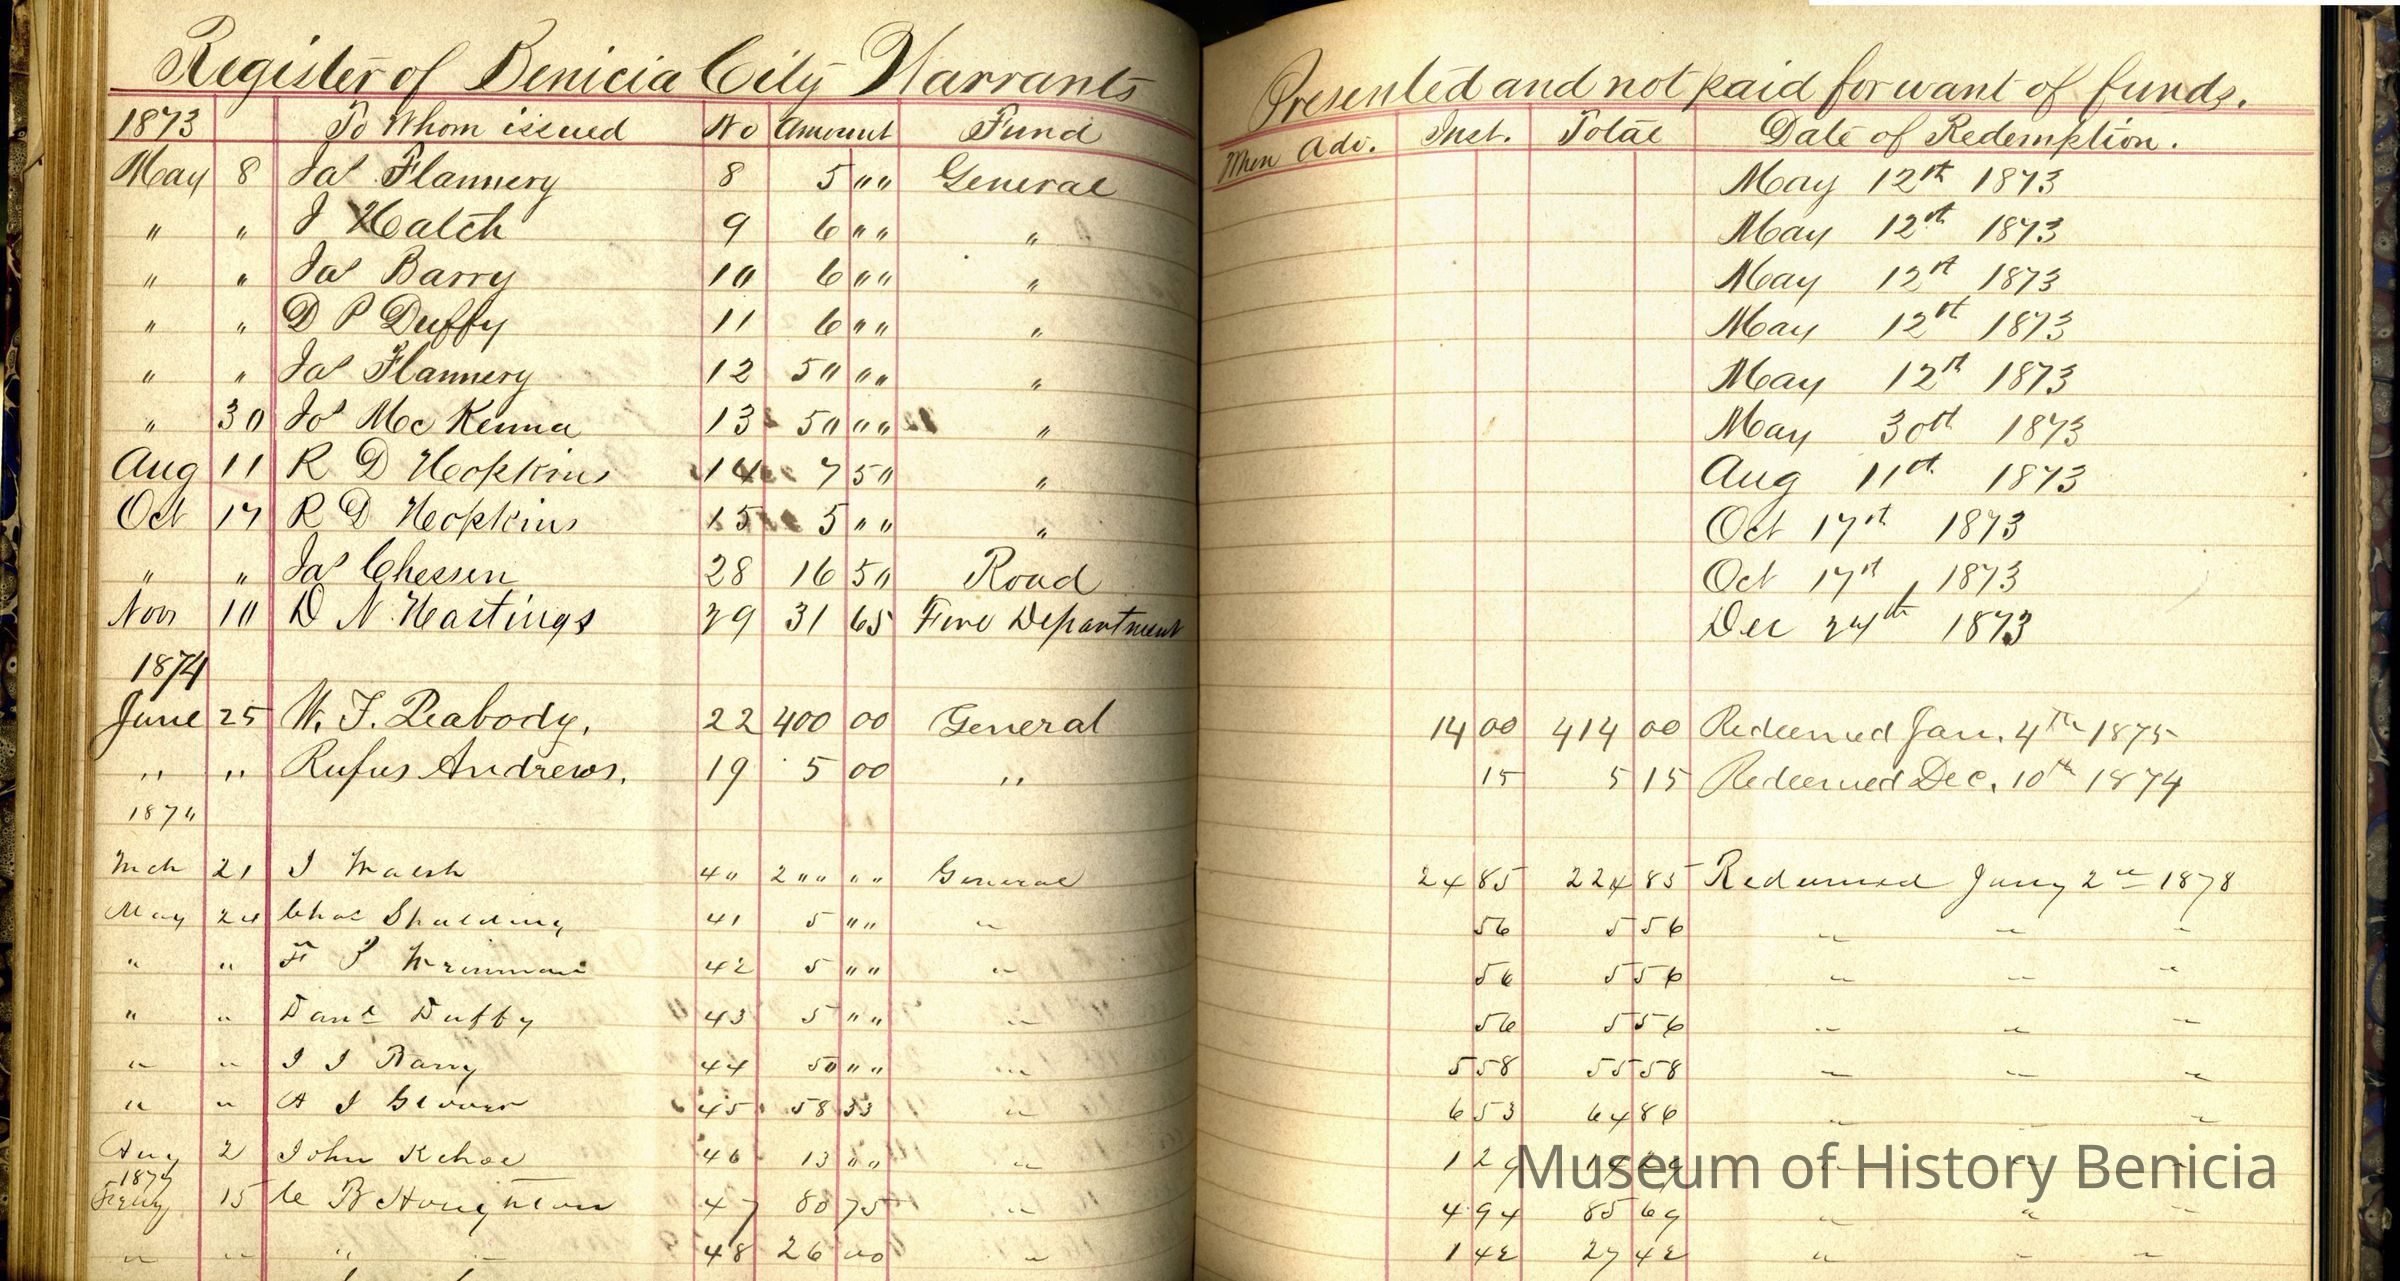 Register of Benicia City Warrants Presented and not paid for want of funds.
1873 To Whom issued No Amount Fund When Adv. Inst. Total Date of Redemption.
May 8 Jas Flannery 8 5 " " General May 12th 1873
" " J Hatch 9 6 " " " May 12th 1873
" " Jas Barry 10 6 " " " May 12th 1873
" " D P Duffy 11 6 " " " May 12th 1873
" " Jas Flannery 12 50 " " " May 12th 1873
" 30 Jos McKenna 13 50 " " " May 30th 1873
Aug 11 R D Hopkins 14 7 50 " Aug 11th 1873
Oct 17 R D Hopkins 15 5 " " " Oct 17th 1873
" " Jas Chessen 28 16 50 Road Oct 17th 1873
Nov 10 D N Hastings 29 31 65 Fire Department Dec 24th 1873
1874
June 25 W. F. Peabody. 22 400 00 General 14 00 414 00 Redeemed Jan. 4th 1875
" " Rufus Andrews. 19 5 00 " 15 5 15 Redeemed Dec. 10th 1874
187
Mch 21 J Walsh 40 200 " " General 24 85 224 85 Redeemed Jany 2nd 1878
May 24 Chas Spalding 41 5 " " " 56 5 56 " " "
" " F P Weinmann 42 5 " " " 56 5 56 " " "
" " Danl Duffy 43 5 " " " 56 5 56 " " "
" " J J Barry 44 50 " " " 5 58 55 58 " " "
" " A J Glover 45 58 33 " 6 53 64 86 " " "
Aug 2 John Kehoe 46 13 " " " 1 29
1877
Feby 15 C B Houghton 47 80 75 " 4 94 85 69 " " "
" " " " 48 26 00 " 1 42 27 42 " " "
Museum of History Benicia